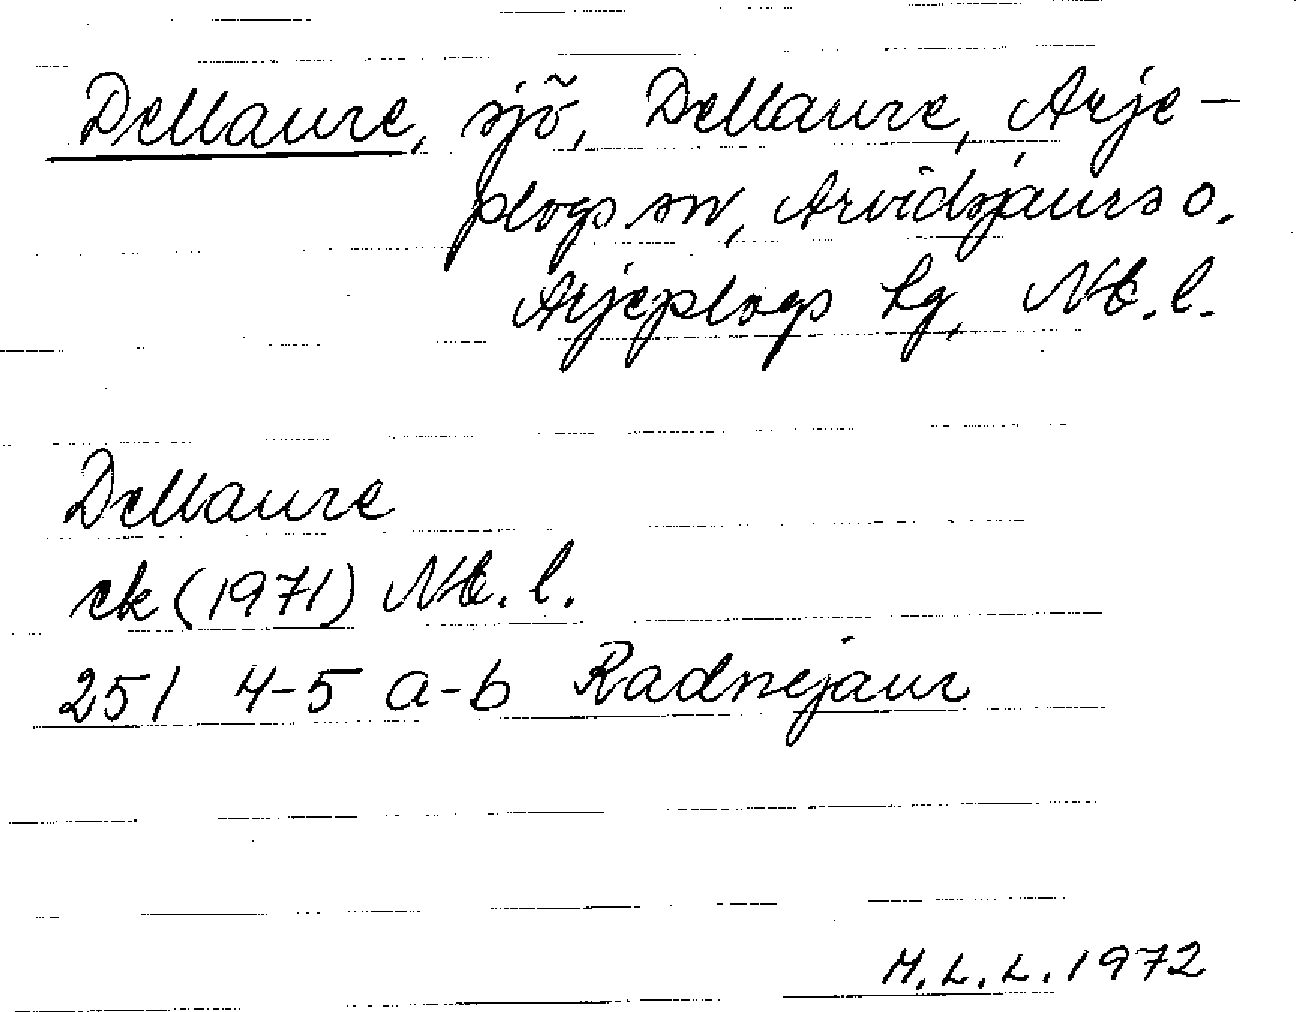 Dellaure, sjö, Dellaure, Arje-
plogs sn, Arvidsjaurs o.
Arjeplogs lg, Nb. l.
Dellaure
ek (1971) Nb. l.
25 I 4-5 a-b Radnejaur
M.L.L. 1972